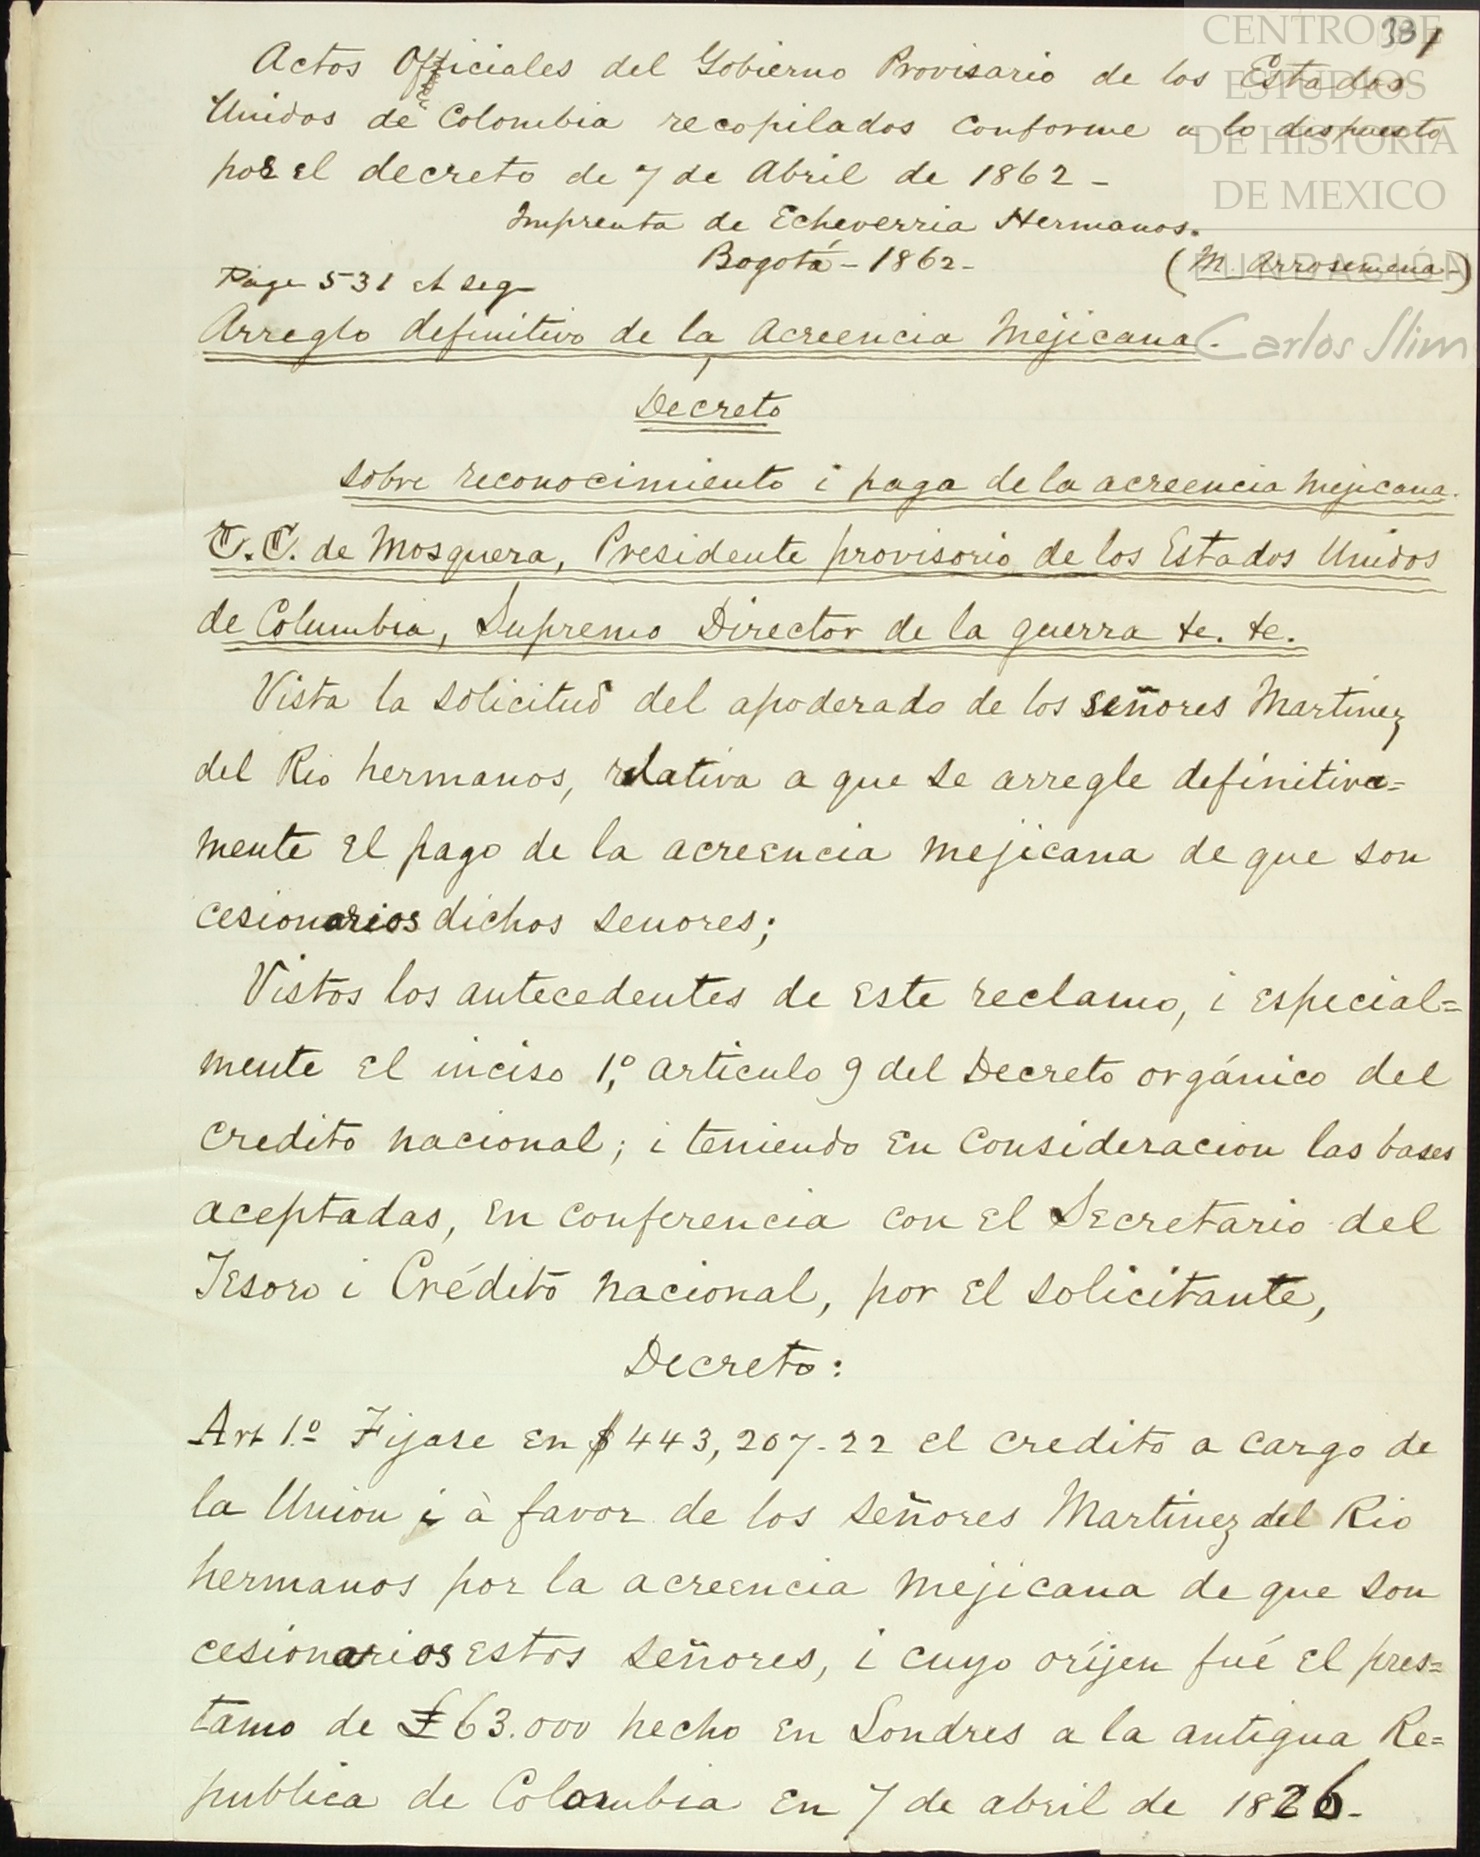 331
CENTRO DE
ESTUDIOS
DE HISTORIA
DE MEXICO
FUNDACIÓN
Carlos Slim
Actos Officiales del Gobierno Provisario de los Estados
Unidos de Colombia recopilados conforme a lo dispuesto
por el decreto de 7 de Abril de 1862 -
Imprenta de Echeverria Hermanos.
Bogotá - 1862 -
(M. Arrosemena -)
Page 531 et seq
Arreglo definitivo de la Acreencia Mejicana.
Decreto
sobre reconocimiento i paga de la acreencia mejicana.
T. C. de Mosquera, Presidente provisorio de los Estados Unidos
de Columbia, Supremo Director de la guerra &c. &c.
Vista la solicitud del apoderado de los señores Martinez
del Rio hermanos, relativa a que se arregle definitiva=
mente el pago de la acreencia mejicana de que son
cesionarios dichos senores;
Vistos los antecedentes de este reclamo, i especial=
mente el inciso 1.º articulo 9 del Decreto orgánico del
credito nacional; i teniendo en consideracion las bases
aceptadas, en conferencia con el Secretario del
Tesoro i Crédito nacional, por el solicitante,
Decreto:
Art 1.º Fijase en $443,207-22 el credito a cargo de
la Union i à favor de los señores Martinez del Rio
hermanos por la acreencia mejicana de que son
cesionarios estos señores, i cuyo oríjen fué el pres=
tamo de £63.000 hecho en Londres a la antigua Re=
publica de Colombia en 7 de abril de 1826-